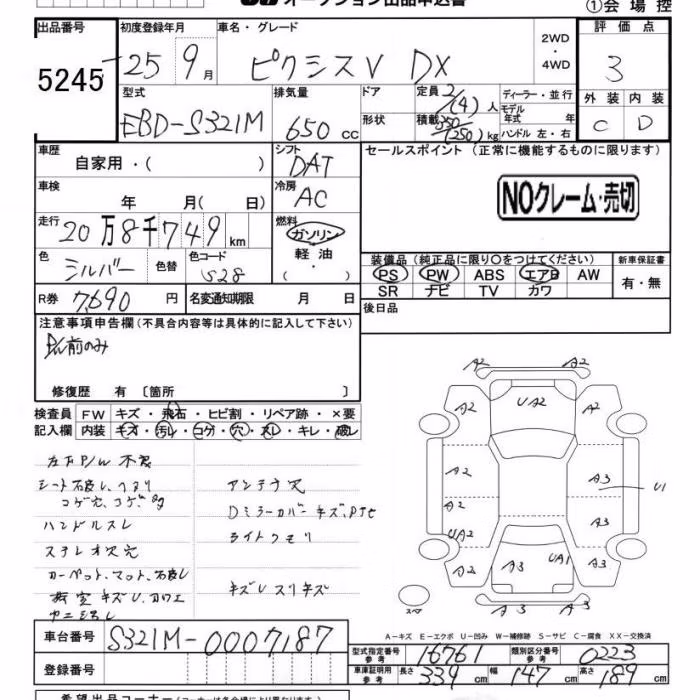 ①会場控
出品番号 初度登録年月 車名・グレード 2WD ・ 4WD 評価点
5245 25 9月 ピクシスV DX 3
型式 排気量 ドア 定員 2/(4)人 ディーラー・並行 外装 内装
EBD-S321M 650cc 形状 積載 350/(250)kg モデル年式 年 ハンドル 左・右 C D
車歴 自家用・( ) シフト DAT セールスポイント(正常に機能するものに限ります)
車検 年 月( 日) 冷房 AC NOクレーム・売切
走行 20万8千749km 燃料 ガソリン 軽油 ・( )
装備品(純正品に限り〇をつけてください) 新車保証書
色 シルバー 色替 色コード S28 PS PW ABS エアB AW 有・無
SR ナビ TV カワ
R券 7,690円 名変通知期限 月 日 後日品
注意事項申告欄(不具合内容等は具体的に記入して下さい)
P/W前のみ
修復歴 有 〔箇所 〕
検査員 FW キズ・飛石・ヒビ割・リペア跡・×要
記入欄 内装 キズ・汚レ・コゲ・穴・スレ・キレ・破レ
左下P/W不良
シート破レ、ヘタリ アンテナ欠
コゲ穴、コゲ Dミラーカバーキズ
ハンドルスレ ライトクモリ
ステレオ欠穴
カーペット、マット、破レ
キズU スリキズ
A2 A2
A2 UA2 A2
A2 A3 U1
A2 A3
UA2
A2 A3 UA1 A3
スペア
A-キズ E-エクボ U-凹み W-補修跡 S-サビ C-腐食 XX-交換済
車台番号 S321M-0007187 型式指定番号 参考 16761 類別区分番号 参考 0223
登録番号 車庫証明用 参考 長さ 339cm 幅 147cm 高さ 189cm